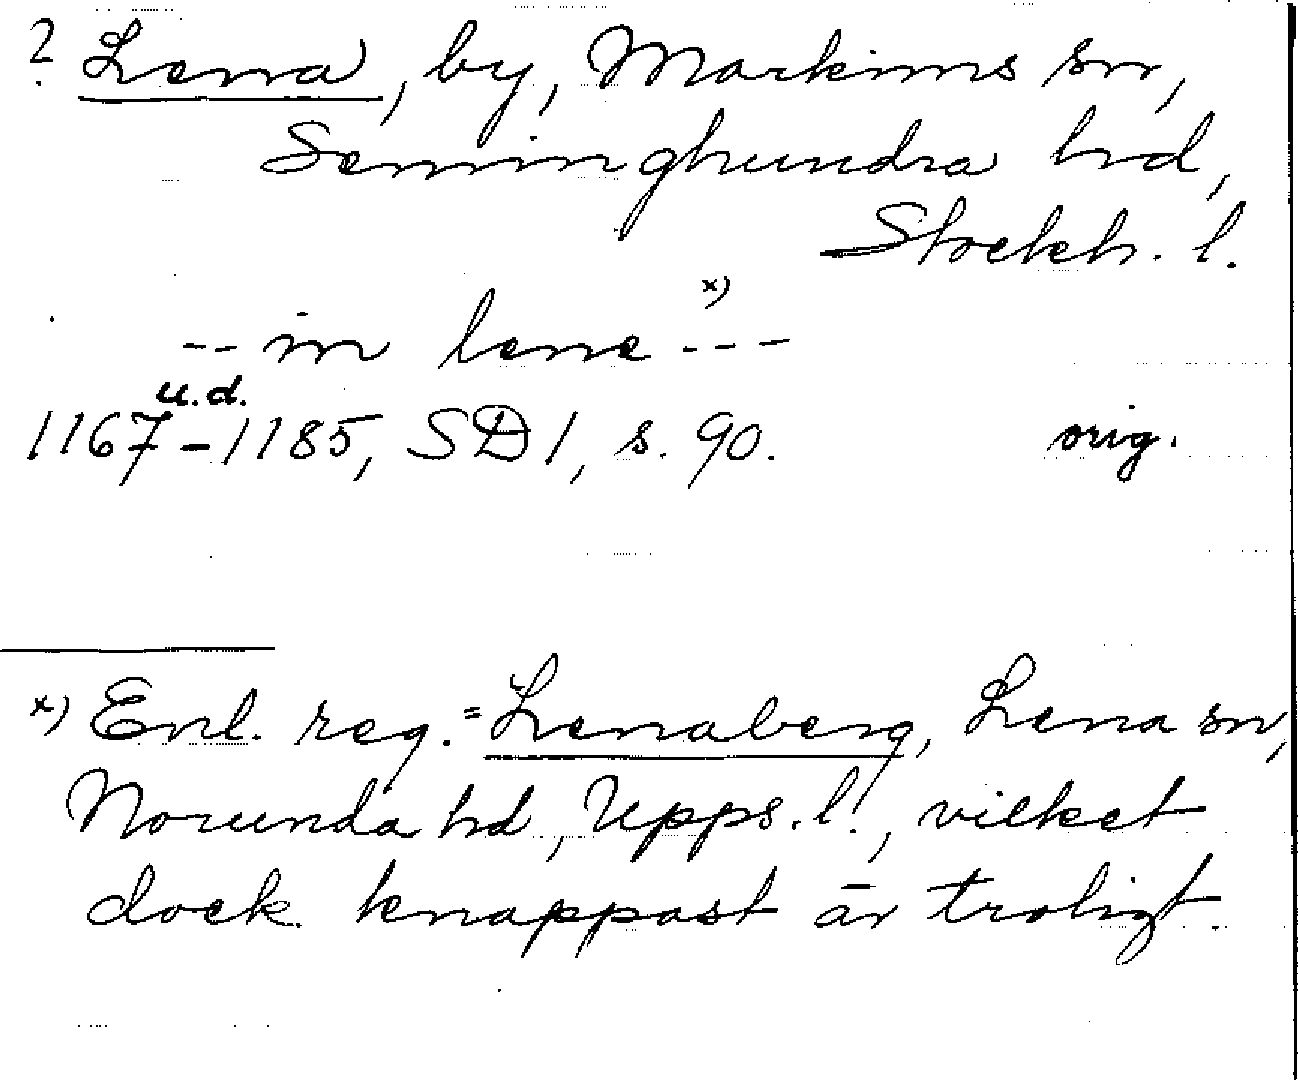 ? Lena, by, Markims sn,
Seminghundra hd,
Stockh. l.
-- in lene x) ---
u.d.
1167-1185, SD 1, s. 90. orig.
x) Enl. reg. = Lenaberg, Lena sn,
Norunda hd, Upps. l., vilket
dock knappast är troligt.